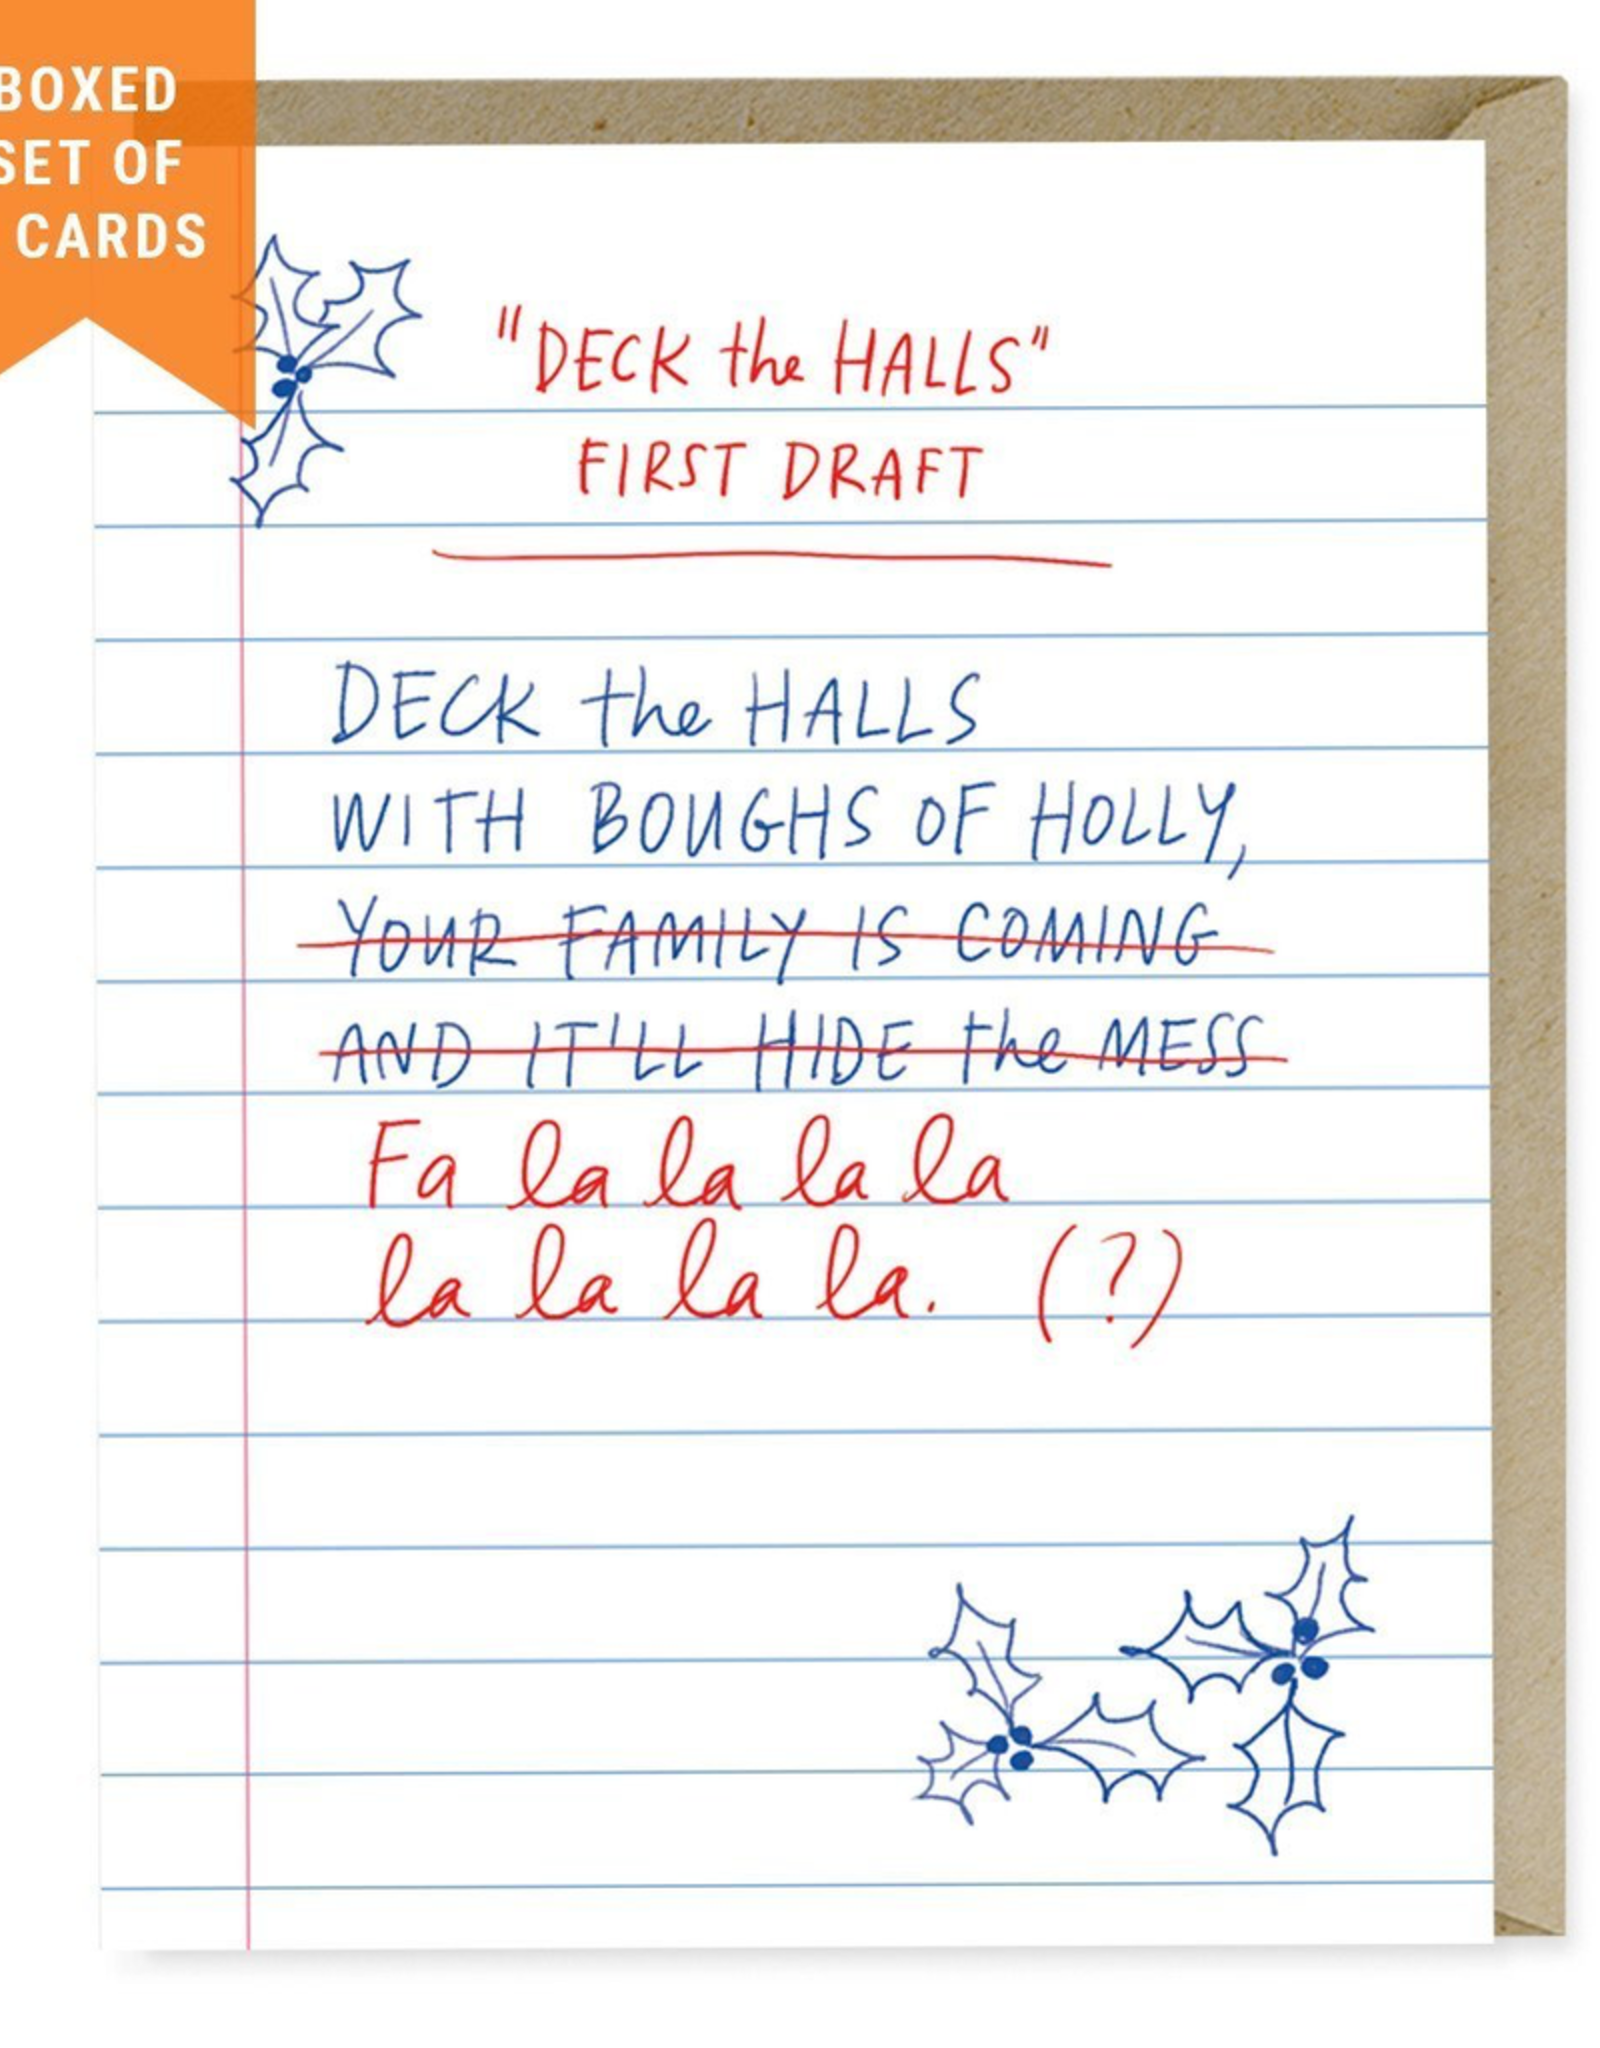 BOXED
SET OF
CARDS
"DECK the HALLS"
FIRST DRAFT
DECK the HALLS
WITH BOUGHS OF HOLLY,
YOUR FAMILY IS COMING
AND IT'LL HIDE the MESS
Fa la la la la
la la la la. (?)